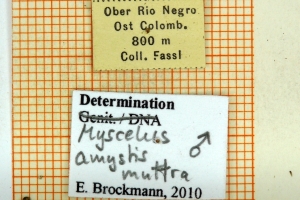 Ober Rio Negro
Ost Colomb.
800 m
Coll. Fassl
Determination
Genit. / DNA
Myscelus ♂
amystis
muttra
E. Brockmann, 2010